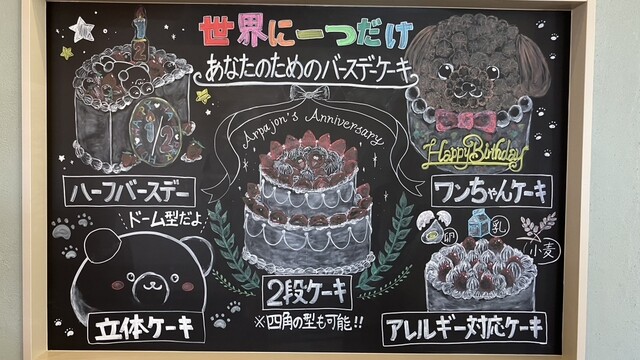 世界に一つだけ
あなたのためのバースデーケーキ
1/2
ハーフバースデー
Arpajon's Anniversary
Happy Birthday
ワンちゃんケーキ
ドーム型だよ
立体ケーキ
2段ケーキ
※四角の型も可能!!
卵
乳
小麦
アレルギー対応ケーキ